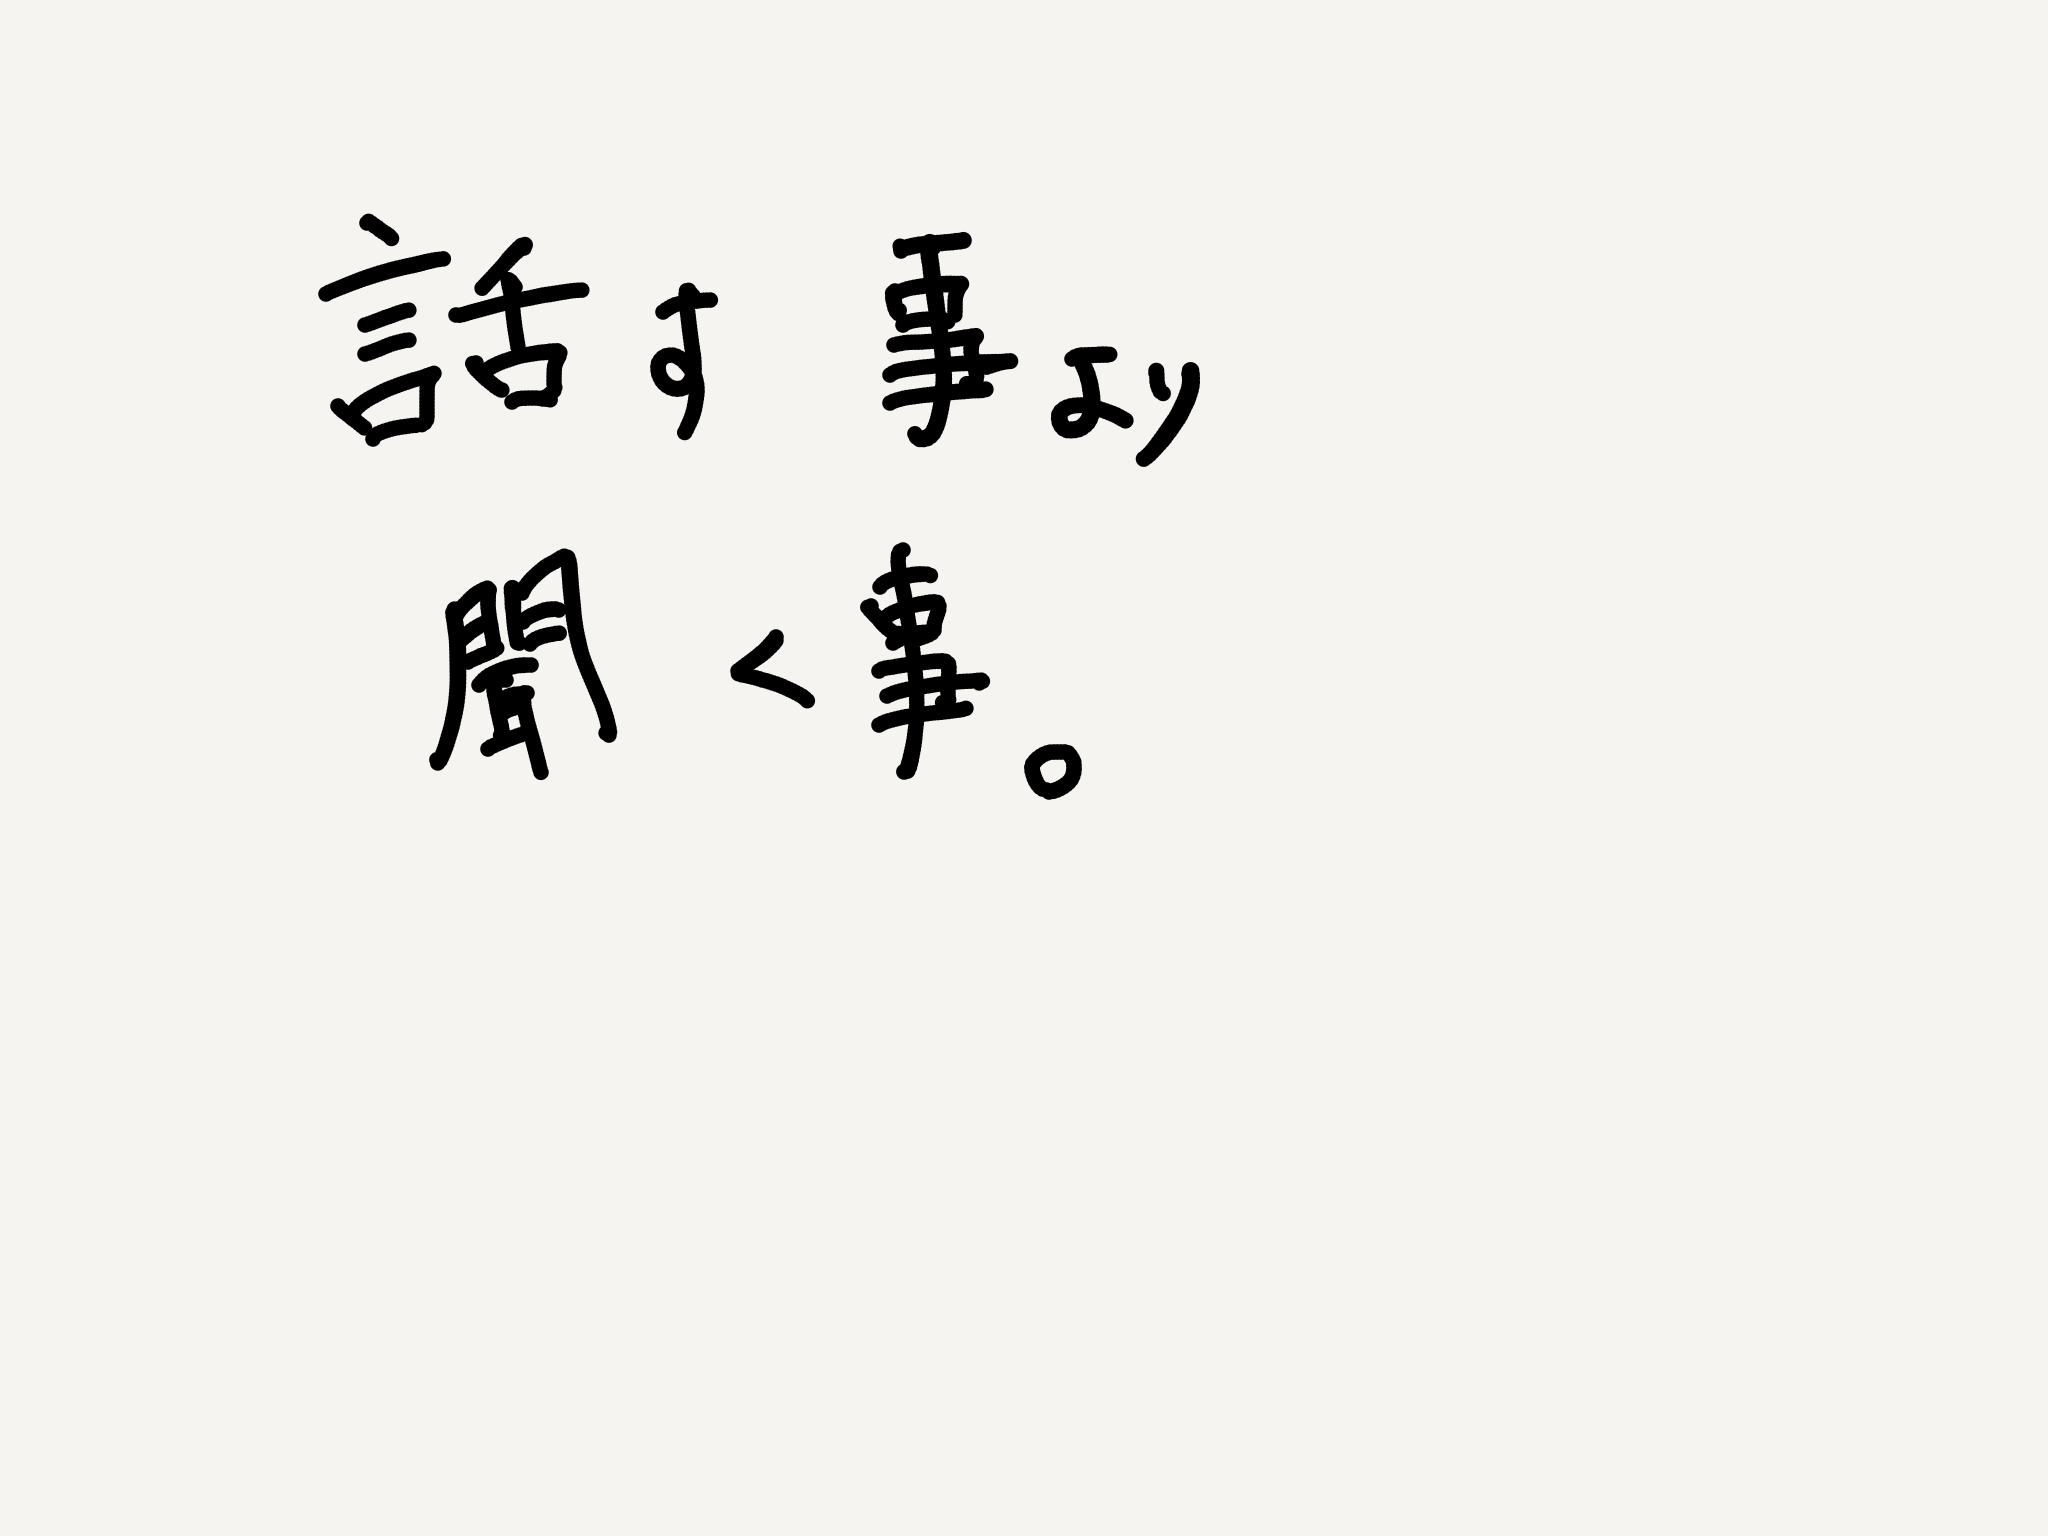 話す事より
聞く事。